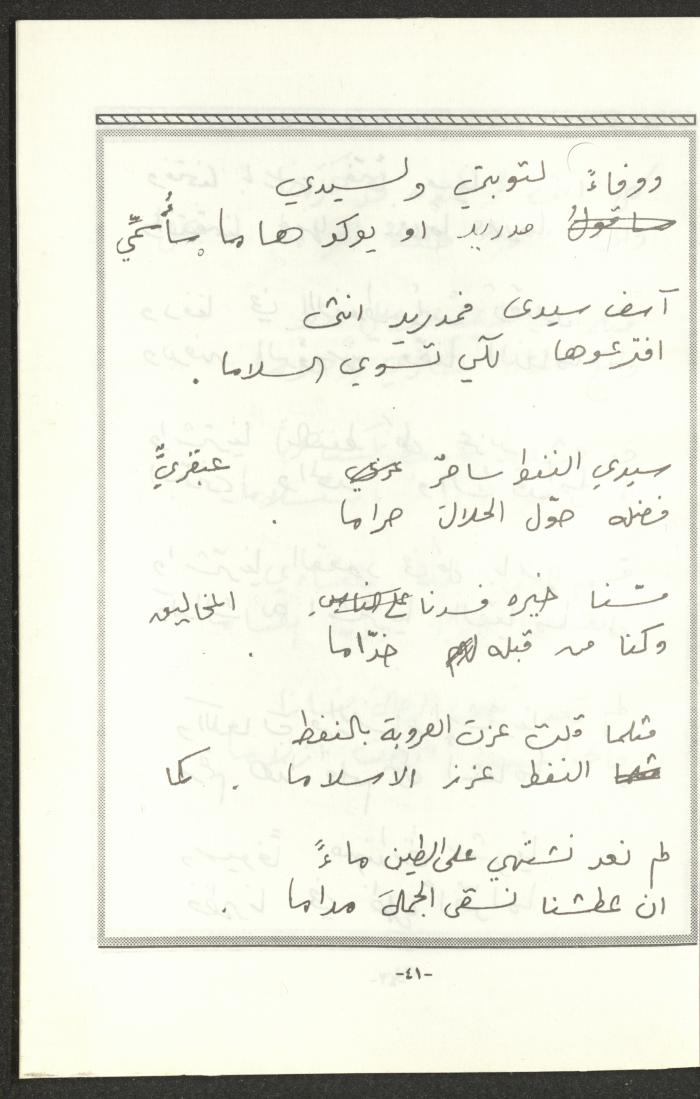 ووفاءً لتوبتي ولسيدي
مدريد او يوكو هاما سأُسمِّي
آسف سيدى فمدريد انثى
افترعوها لكي تسوي السلاما .
سيدي النفط ساحرٌ عبقريٌّ
فضله حوّل الحلال حراما .
مسّنا خيره فسدنا المخاليق
وكنا من قبله خدّاما .
مثلما قلت عزت العروبة بالنفط
كما النفط عزز الاسلاما .
لم نعد نشتهي على الطين ماءً
ان عطشنا نسقى الجمال مداما .
-٤١-